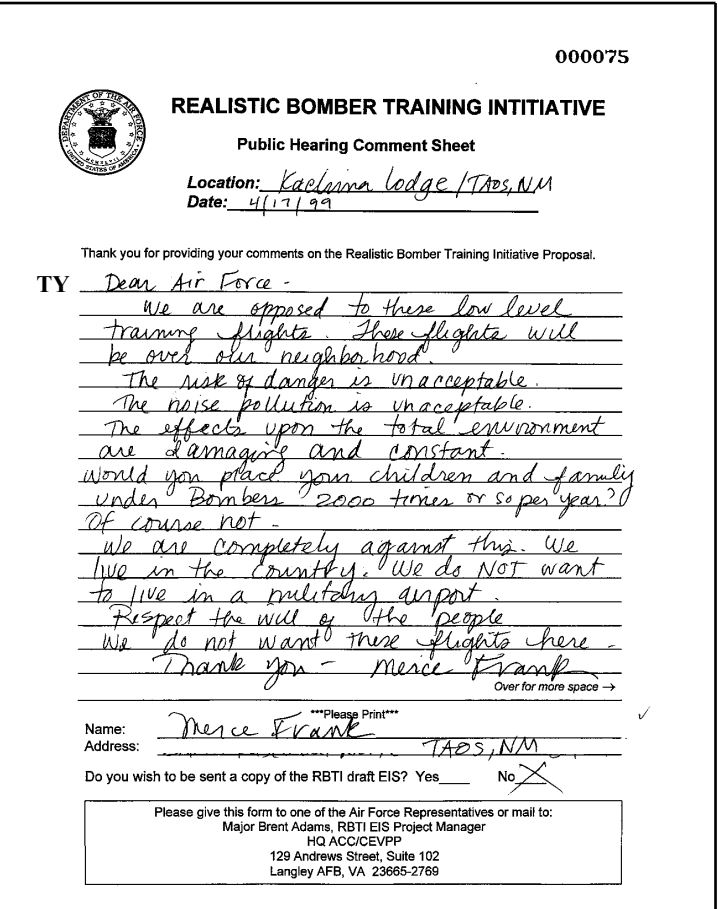 000075
REALISTIC BOMBER TRAINING INTITIATIVE
Public Hearing Comment Sheet
Location: Kachina Lodge / TAOS, NM
Date: 4/17/99
Thank you for providing your comments on the Realistic Bomber Training Initiative Proposal.
TY Dear Air Force -
We are opposed to these low level
training flights. These flights will
be over our neighborhood.
The risk of danger is unacceptable.
The noise pollution is unacceptable.
The effects upon the total environment
are damaging and constant.
Would you place your children and family
under Bombers 2000 times or so per year?
Of course not -
We are completely against this. We
live in the country. We do NOT want
to live in a military airport.
Respect the will of the people
We do not want these flights here -
Thank you - Merce Frank
Over for more space →
***Please Print***
Name: Merce Frank
Address: TAOS, NM
Do you wish to be sent a copy of the RBTI draft EIS? Yes____ No X
Please give this form to one of the Air Force Representatives or mail to:
Major Brent Adams, RBTI EIS Project Manager
HQ ACC/CEVPP
129 Andrews Street, Suite 102
Langley AFB, VA 23665-2769